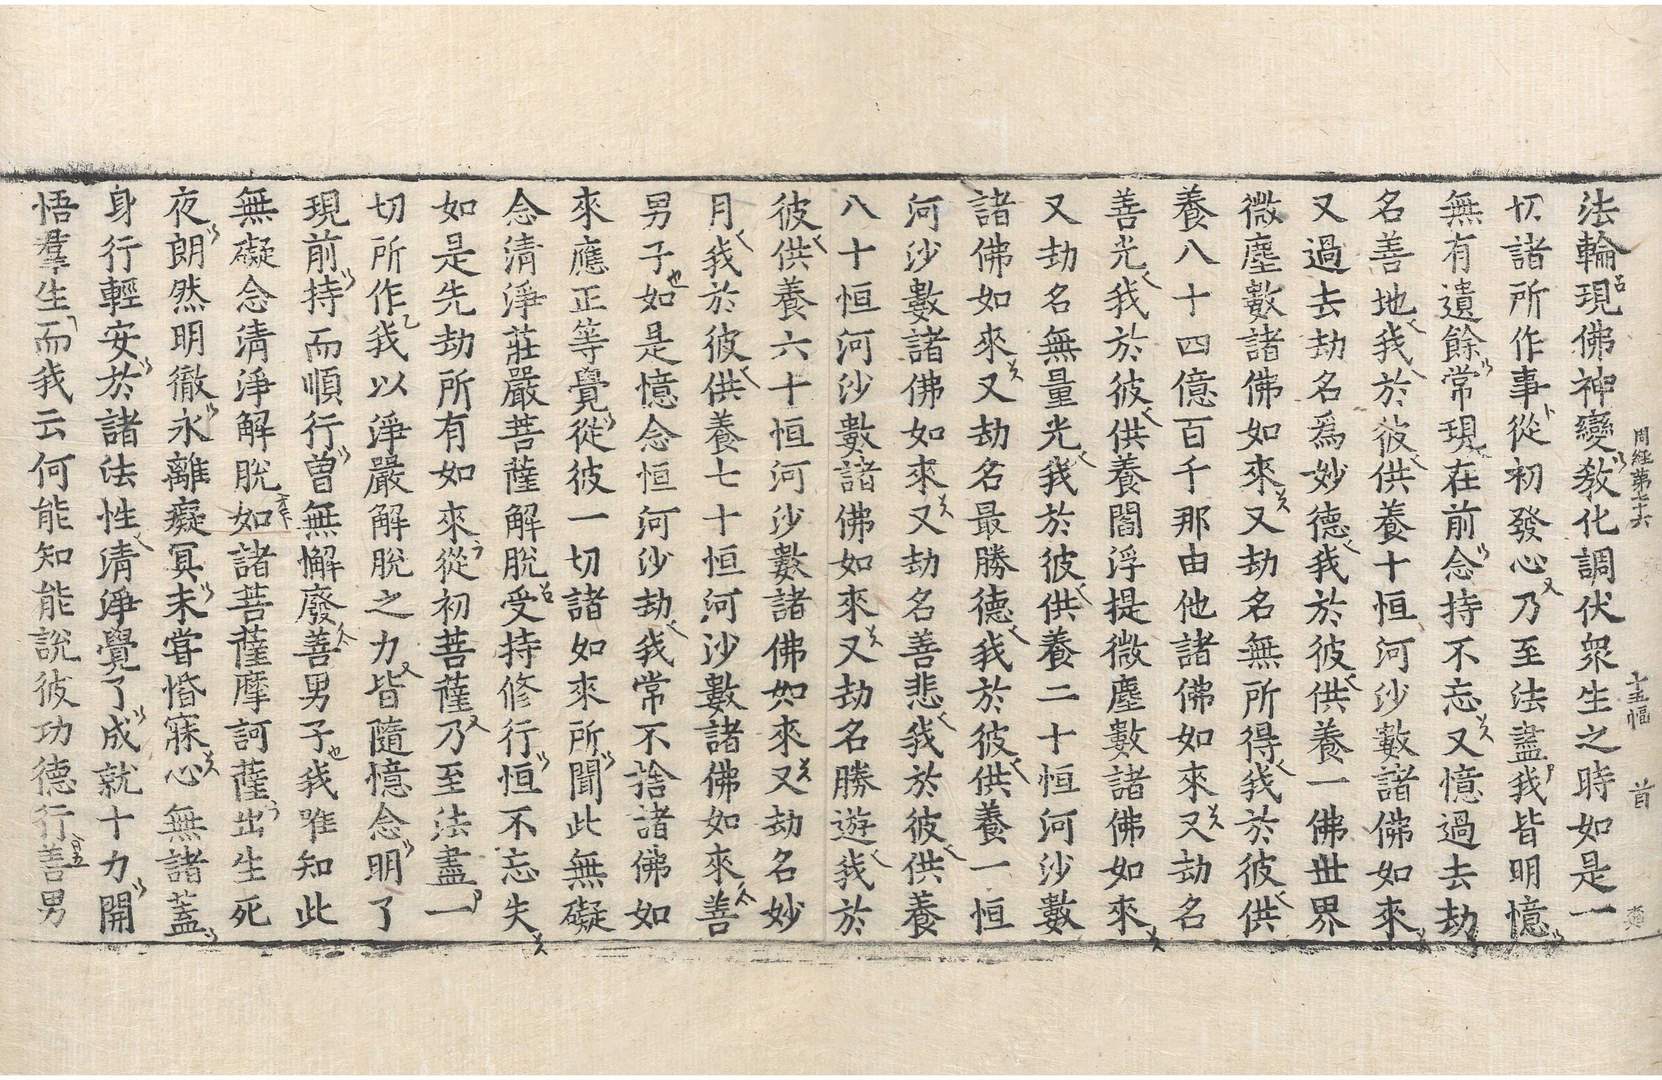 周経第七十六 十五幅 首
法輪現佛神變教化調伏衆生之時如是一
切諸所作事從初發心乃至法盡我皆明憶
無有遺餘常現在前念持不忘又憶過去劫
名善地我於彼供養十恒河沙數諸佛如來
又過去劫名爲妙德我於彼供養一佛世界
微塵數諸佛如來又劫名無所得我於彼供
養八十四億百千那由他諸佛如來又劫名
善光我於彼供養閻浮提微塵數諸佛如來
又劫名無量光我於彼供養二十恒河沙數
諸佛如來又劫名最勝德我於彼供養一恒
河沙數諸佛如來又劫名善悲我於彼供養
八十恒河沙數諸佛如來又劫名勝遊我於
彼供養六十恒河沙數諸佛如來又劫名妙
月我於彼供養七十恒河沙數諸佛如來善
男子如是憶念恒河沙劫我常不捨諸佛如
來應正等覺從彼一切諸如來所聞此無礙
念清淨莊嚴菩薩解脫受持修行恒不忘失
如是先劫所有如來從初菩薩乃至法盡一
切所作我以淨嚴解脫之力皆隨憶念明了
現前持而順行曾無懈廢善男子我唯知此
無礙念清淨解脫如諸菩薩摩訶薩出生死
夜朗然明徹永離癡冥未嘗惛寐心無諸蓋
身行輕安於諸法性清淨覺了成就十力開
悟羣生而我云何能知能說彼功德行善男